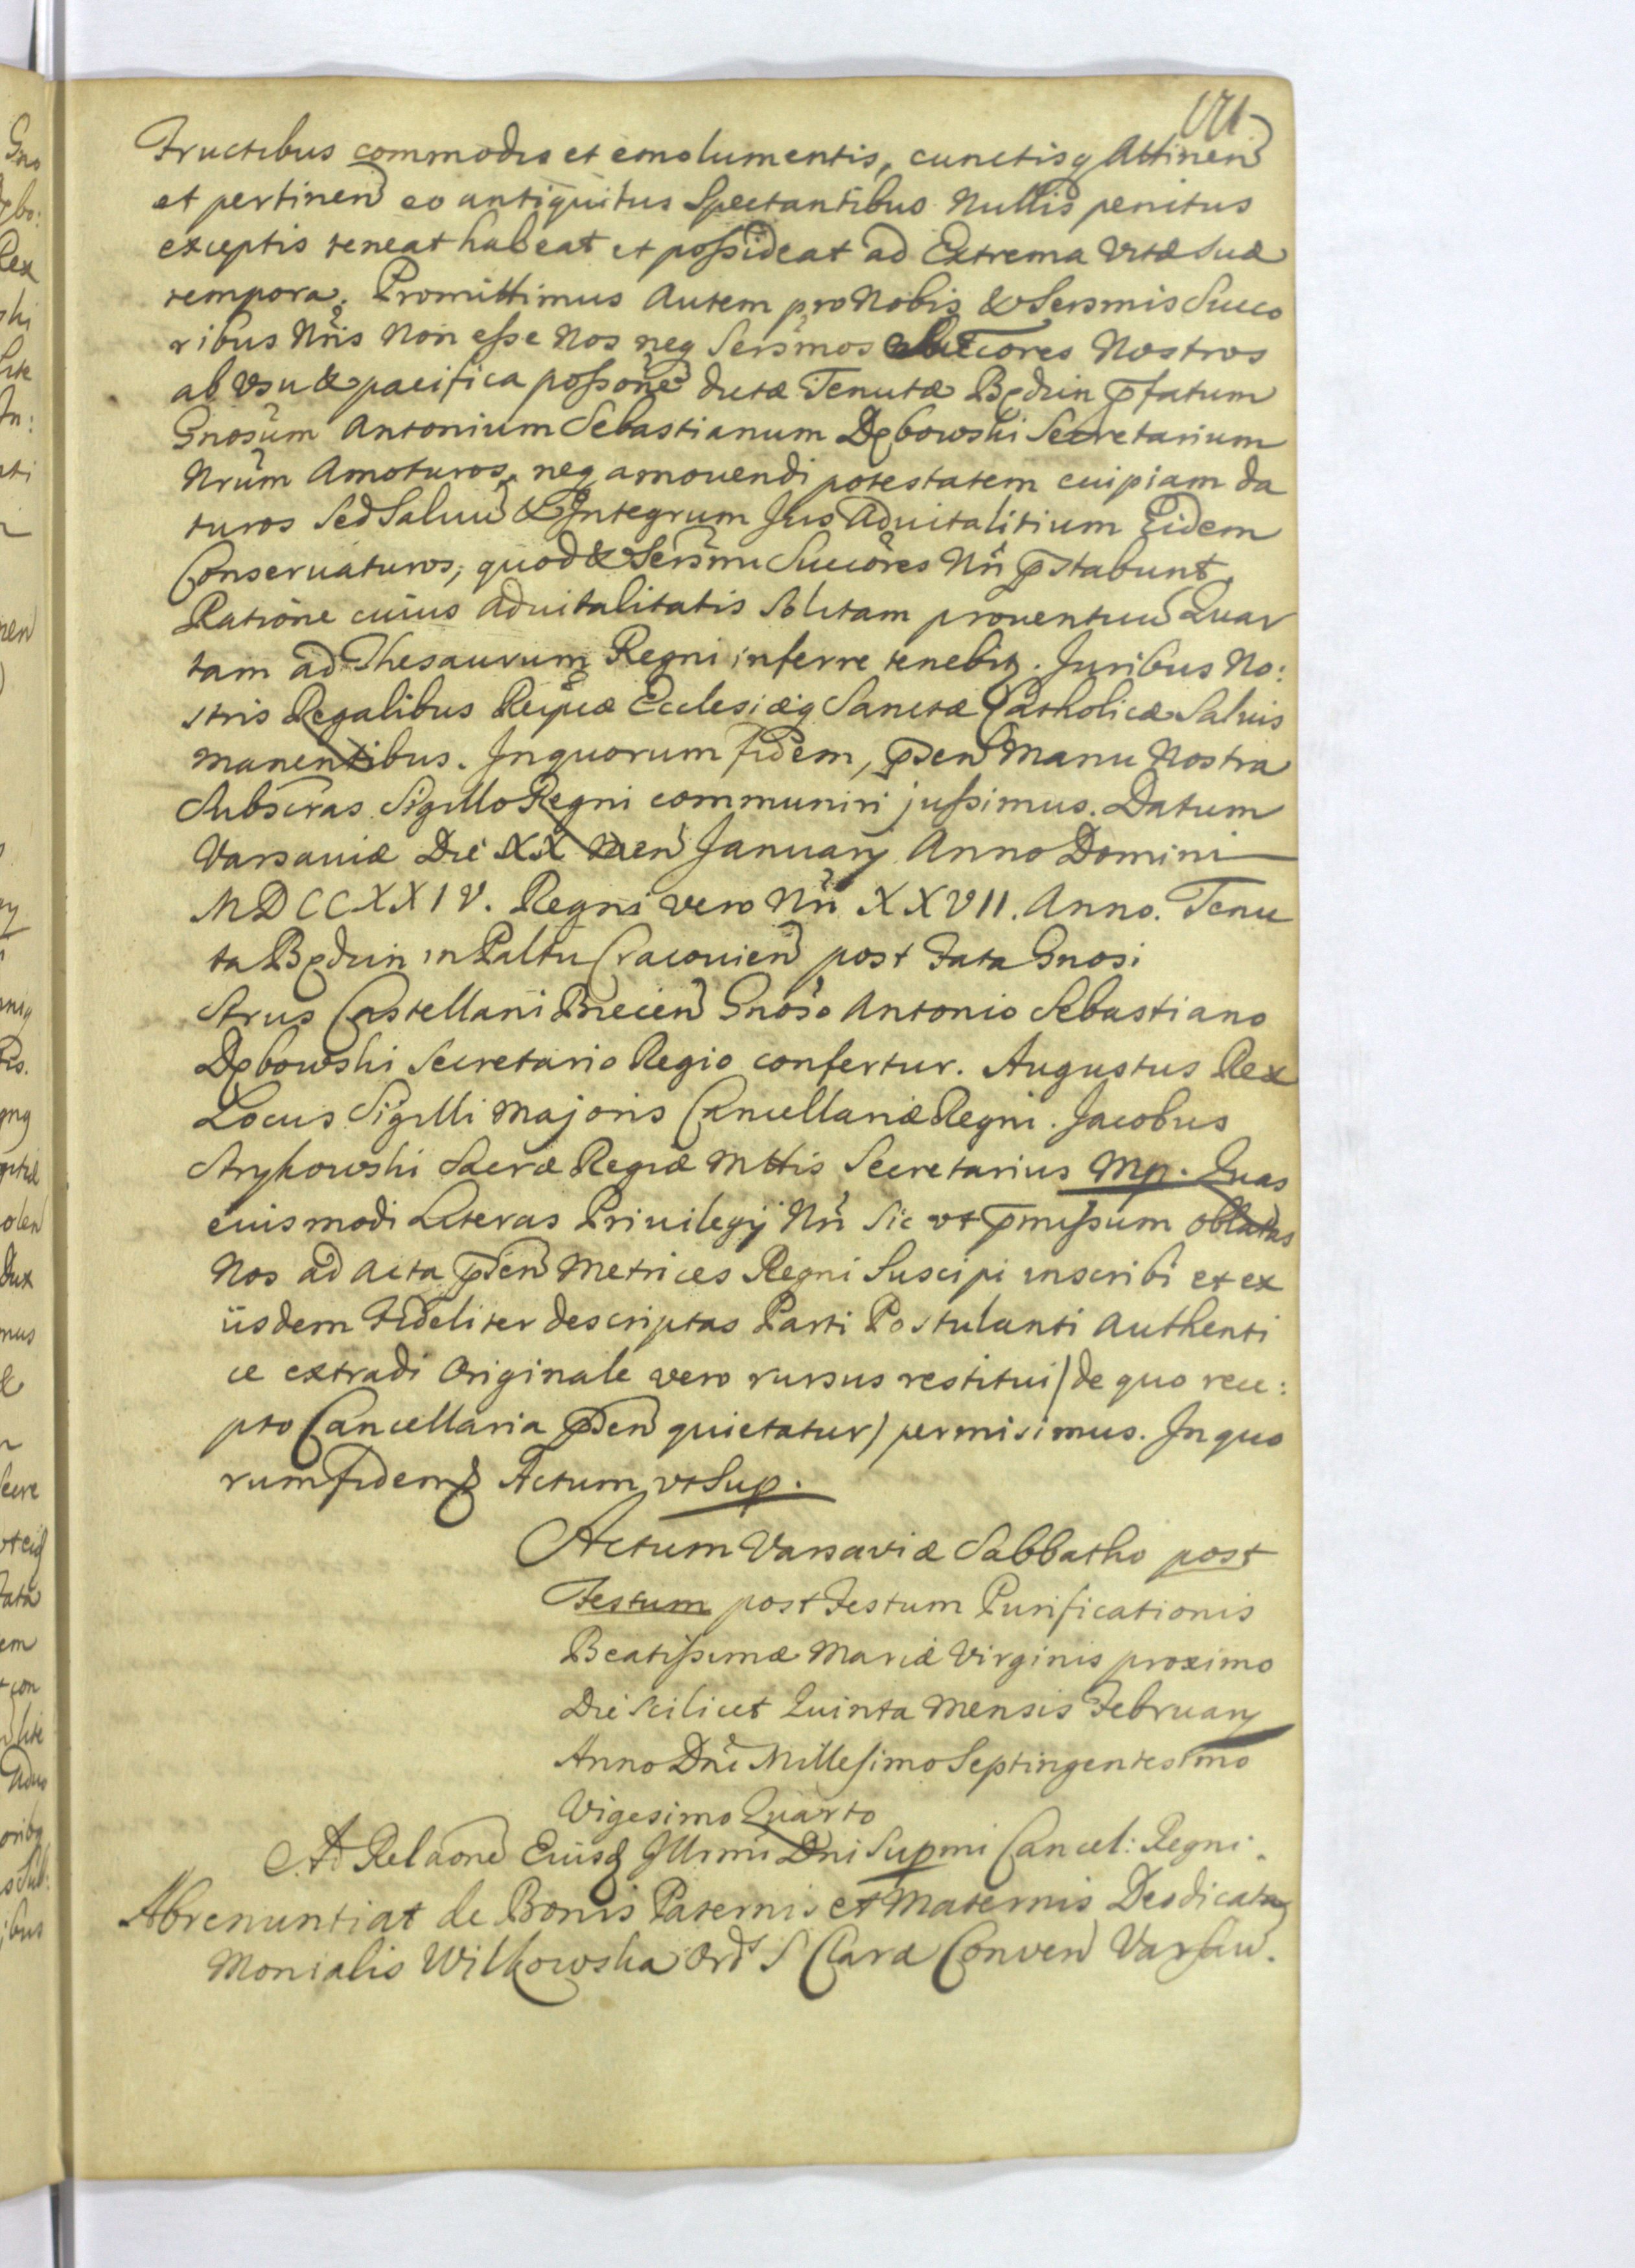 171
Fructibus commodis et emolumentis, cunctisq Attinen
et pertinen eo antiquitus Spectantibus Nullis penitus
exceptis teneat habeat et poſsideat ad Extrema vitæ suæ
tempora. Promittimus Autem pro Nobis & Serꝫmis Succo
ribus Nr̃is Non eſse Nos neq Serꝫmos Succores Nostros
ab vsu & pacifica poſsone dictæ Tenutæ Będzin p̃fatum
Gnosum Antonium Sebastianum Dębowski Secretarium
Nrum Amoturos, neq amouendi potestatem cuipiam da
turos Sed Saluũ & Integrum Jus Aduitalitium Eidem
Conseruaturos, quod & Serꝫmi Succores Nri p̃stabunt.
Ratione cuius aduitalitatis Solitam prouentuũ Quar
tam ad Thesaurum Regni inferre tenebit. Juribus No:
stris Regalibus Reipcæ Ecclesiæq Sanctæ Catholicæ Saluis
manentibus. In quorum fidem, p̃sen Manu Nostra
Subscras Sigillo Regni communiri juſsimus. Datum
Varsauiæ Die XX Men January Anno Domini
MDCCXXIV. Regni vero Nri XXVII. Anno. Tenu
ta Będzin in Paltu Cracouien post Fata Gnosi
Strus Castellani Brecen Gnoso Antonio Sebastiano
Dębowski Secretario Regio confertur. Augustus Rex
Locus Sigilli Majoris Cancellariæ Regni. Jacobus
Strykowski Sacræ Regiæ Mttis Secretarius Mp. Quas
eiusmodi Literas Priuilegij Nri Sic vt p̃miſsum oblatas
Nos ad Acta p̃sen Metrices Regni Suscipi inscribi et ex
iisdem Fideliter descriptas Parti Postulanti Authenti
ce extradi Originale vero rursus restitui /de quo rece:
pto Cancellaria p̃sen quietatur/ permisimus. In quo
rum fidem Actum vt Sup.
Actum Varsaviæ Sabbatho post
Festum post Festum Purificationis
Beatiſsimæ Mariæ Virginis proximo
Die scilicet Quinta Mensis February
Anno Dni Milleſimo Septingentesimo
Vigesimo Quarto
Ad Relaone Eiusd Illrmi Dni Supmi Cancel: Regni.
Abrenuntiat de Bonis Paternis et Maternis Deodicata
Monialis Wilkowska Ord S Claræ Conven Varsau.